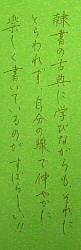 隷書の古典に学びながらも、それに
とらわれず、自分の線で伸やかに
楽しく書いているのがすばらしい!!